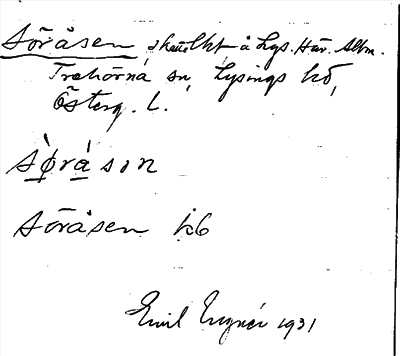 Söråsen, skattlht å Lys. Här. Allm.
Trehörna sn, Lysings hd,
Österg. L.
sø̀rásɩn
Söråsen k6
Emil 1931